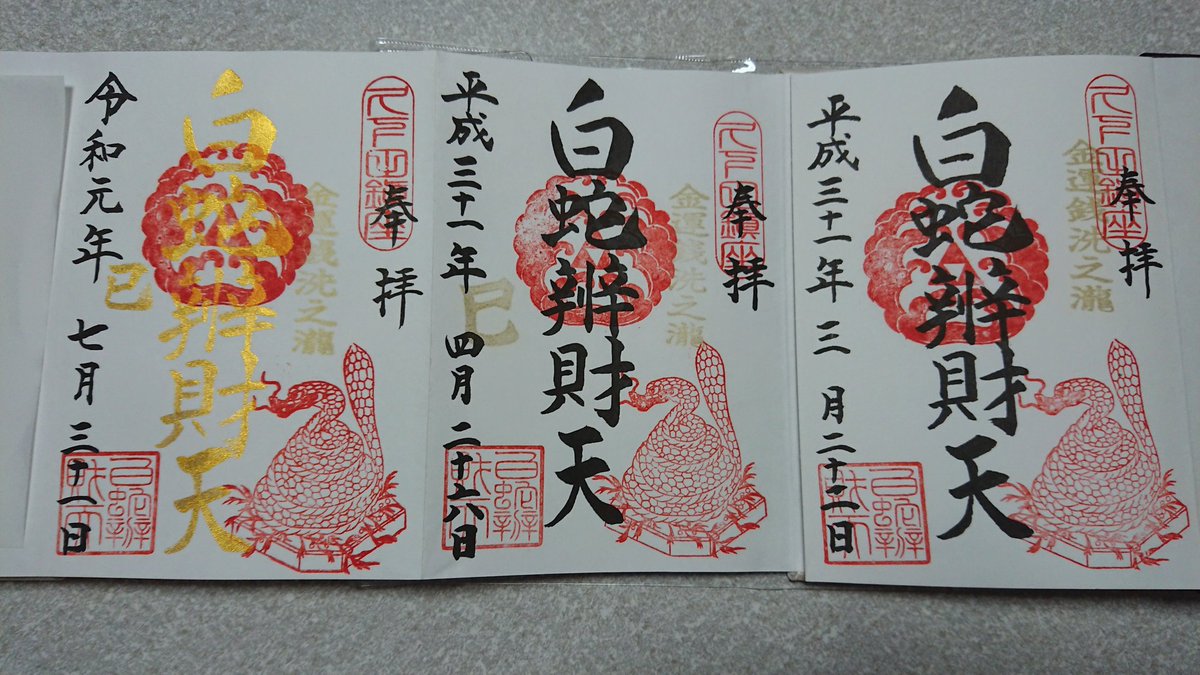 奉拝
金運銭洗之瀧
白蛇辨財天
平成三十一年 三月二十二日
奉拝
金運銭洗之瀧
白蛇辨財天
巳
平成三十一年 四月二十六日
奉拝
金運銭洗之瀧
白蛇辨財天
巳
令和元年 七月三十一日